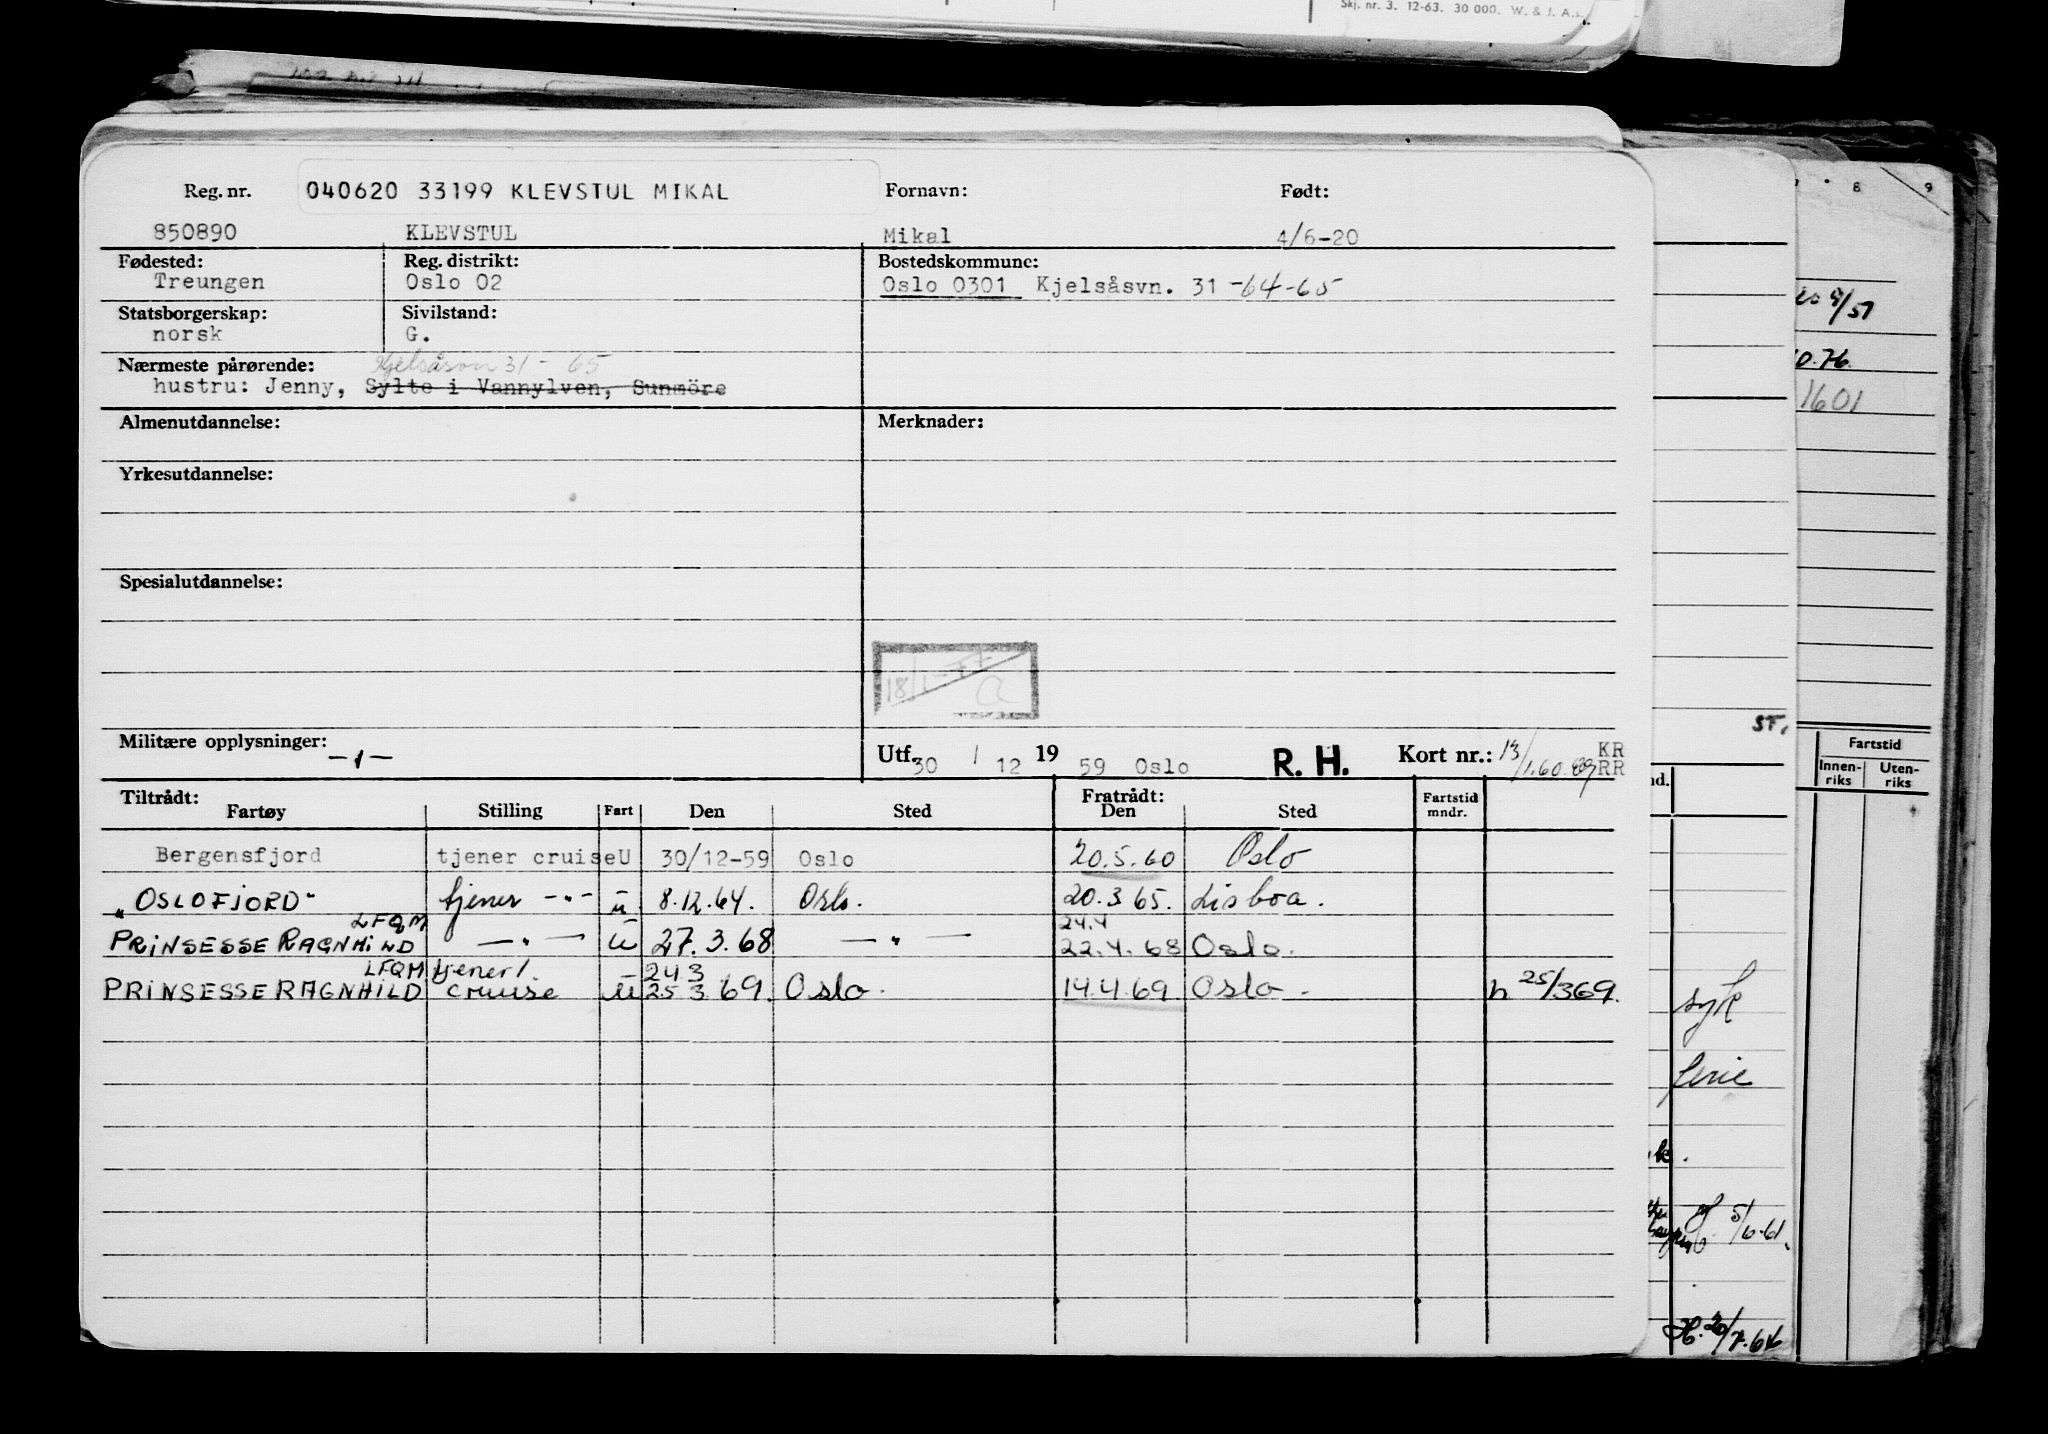 Skj. nr. 3. 12-63. 30 000. W. & J. A.s.
Reg. nr. 040620 33199 KLEVSTUL MIKAL Fornavn: Født:
850890 KLEVSTUL Mikal 4/6-20
Fødested: Reg. distrikt: Bostedskommune:
Treungen Oslo 02 Oslo 0301 Kjelsåsvn. 31 -64-65
Statsborgerskap: Sivilstand:
norsk G.
Nærmeste pårørende: Kjelsåsvn 31 - 65
hustru: Jenny, Sylte i Vannylven, Sunmöre
Almenutdannelse: Merknader:
Yrkesutdannelse:
Spesialutdannelse:
18/1-77 a
Militære opplysninger: -1-
Utf. 30 / 12 19 59 Oslo R. H. Kort nr.: 13/1.60. KR RR
Tiltrådt: Fratrådt:
Fartøy Stilling Fart Den Sted Den Sted Fartstid mndr.
Bergensfjord tjener cruise U 30/12-59 Oslo 20.5.60 Oslo
"OSLOFJORD" tjener -"- u 8.12.64. Oslo. 20.3 65. Lisboa.
LFQM 24.4
PRINSESSE RAGNHILD -"- U 27.3.68 -"- 22.4.68 Oslo.
LFQM tjener/. 24 3
PRINSESSE RAGNHILD cruise U 25 3 69. Oslo. 14.4.69. Oslo. h 25/369.
8 9
5/51
0.76.
1601
ST.
Fartstid
Innen-riks Uten-riks
nd.
syk
ferie
k.
5/6-61.
H. 20/7.64